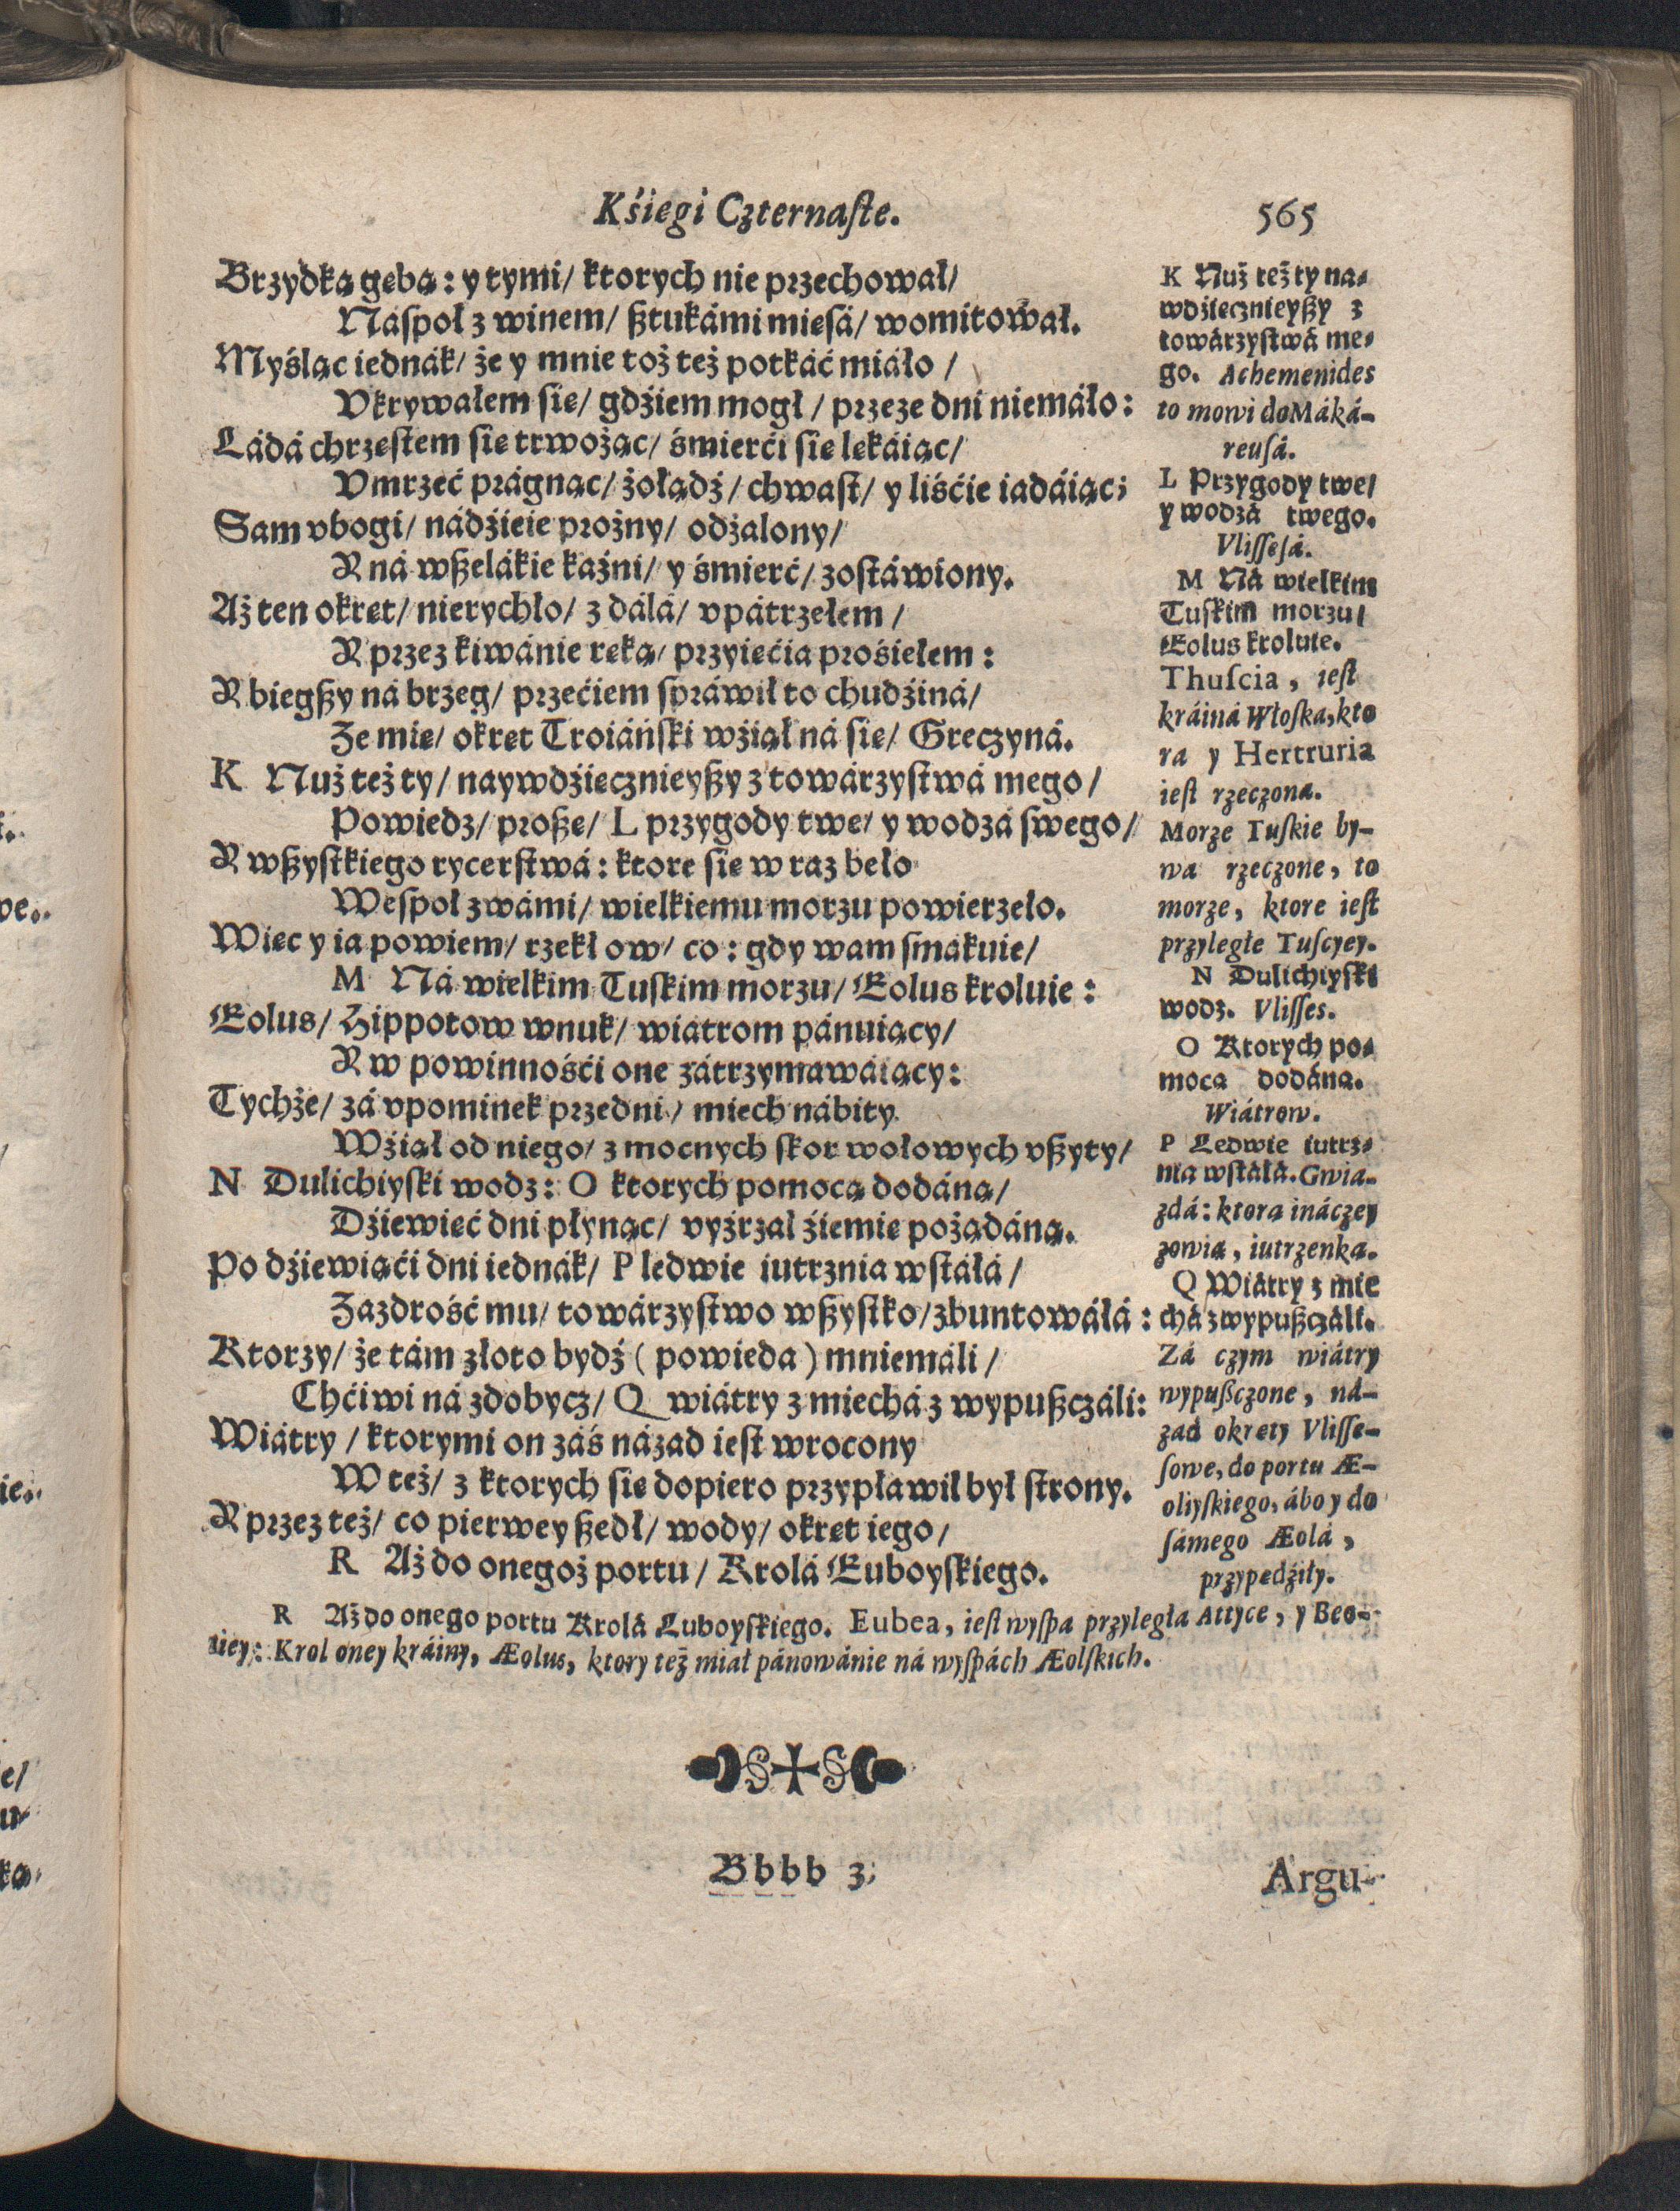 Kśiegi Czternaſte.
565
Brzydką gębą: y tymi/ ktorych nie przechował/
Náſpoł z winem/ ßtukámi mięſá/ womitował.
Myśląc iednák/ że y mnie toż też potkáć miáło/
Vkrywałem ſię/ gdźiem mogł/ przeze dni niemáło:
Ládá chrzeſtem ſię trwożąc/ śmierći ſię lękáiąc/
Vmrzeć prágnąc/ żołądź/ chwaſt/ y liśćie iadáiąc;
Sam vbogi/ nádźieie prożny/ odżalony/
A ná wßelákie kaźni/ y śmierć/ zoſtáwiony.
Aż ten okręt/ nierychło/ z dálá/ vpátrzełem/
A przez kiwánie ręką/ przyięćia prośiełem:
A biegßy ná brzeg/ przećiem ſpráwił to chudźiná/
Że mię/ okręt Troiáński wźiął ná się/ Greczyná.
K Nuż też ty/ naywdźięcznieyßy z towárzyſtwá mego/
Powiedz/ proßę/ L przygody twe/ y wodzá ſwego/
A wßyſtkiego rycerſtwá: ktore ſię w raz beło
Weſpoł z wámi/ wielkiemu morzu powierzeło.
Więc y ia powiem/ rzekł ow/ co: gdy wam ſmákuie/
M Ná wielkim Tuſkim morzu/ Eolus kroluie:
Eolus/ Hippotow wnuk/ wiatrom pánuiący/
A w powinnośći one zátrzymawáiący:
Tychże/ zá vpominek przedni/ miech nábity
Wźiął od niego/ z mocnych ſkor wołowych vßyty/
N Dulichiyſki wodz: O ktorych pomocą dodáną/
Dźiewięć dni płynąc/ vyźrzał źiemię pożądáną.
Po dźiewiąći dni iednák/ P ledwie iutrznia wſtáłá/
Zazdrość mu/ towárzyſtwo wßyſtko/ zbuntowáłá:
Ktorzy/ że tám złoto bydź (powieda) mniemáli/
Chćiwi ná zdobycz/ Q wiátry z miechá z wypußczáli:
Wiátry/ ktorymi on záś názad ieſt wrocony
W też/ z ktorych ſię dopiero przypławił był ſtrony.
A przez też/ co pierwey ßedł/ wody/ okręt iego/
R Aż do onegoż portu/ Krolá Euboyſkiego.
K Nuż też ty na-
wdźięcznieyßy z
towárzyſtwá me-
go. Achemenides
to mowi do Máká-
reuſá.
L Przygody twe/
y wodzá twego.
Vliſſeſá.
M Ná wielkim
Tuſkim morzu/
Eolus kroluie.
Thuſcia, ieſt
kráiná Włoſka, kto
ra y Hertruria
ieſt rzeczona.
Morze Tuſkie by-
wa rzeczone, to
morze, ktore ieſt
przyległe Tuſcyey.
N Dulichiyſki
wodz. Vliſſes.
O Ktorych po-
mocą dodáną.
Wiátrow.
P Ledwie iutrz-
nia wſtáłá. Gwia-
zdá: ktora ináczey
zowią, iutrzenką.
Q Wiátry z mie
chá z wypußczáli.
Zá czym wiátry
wypußczone, ná-
zad okręty Vliſſe-
ſowe, do portu Æ-
oliyſkiego, ábo y do
ſámego Æolá,
przypędźiły.
R Aż do onego portu Krolá Euboyſkiego. Eubea, ieſt wyſpa przyległa Attyce, y Beo-
tiey: Krol oney kráiny, Æolus, ktory też miał pánowánie ná wyſpách Æolſkich.
Bbbb 3
Argu-